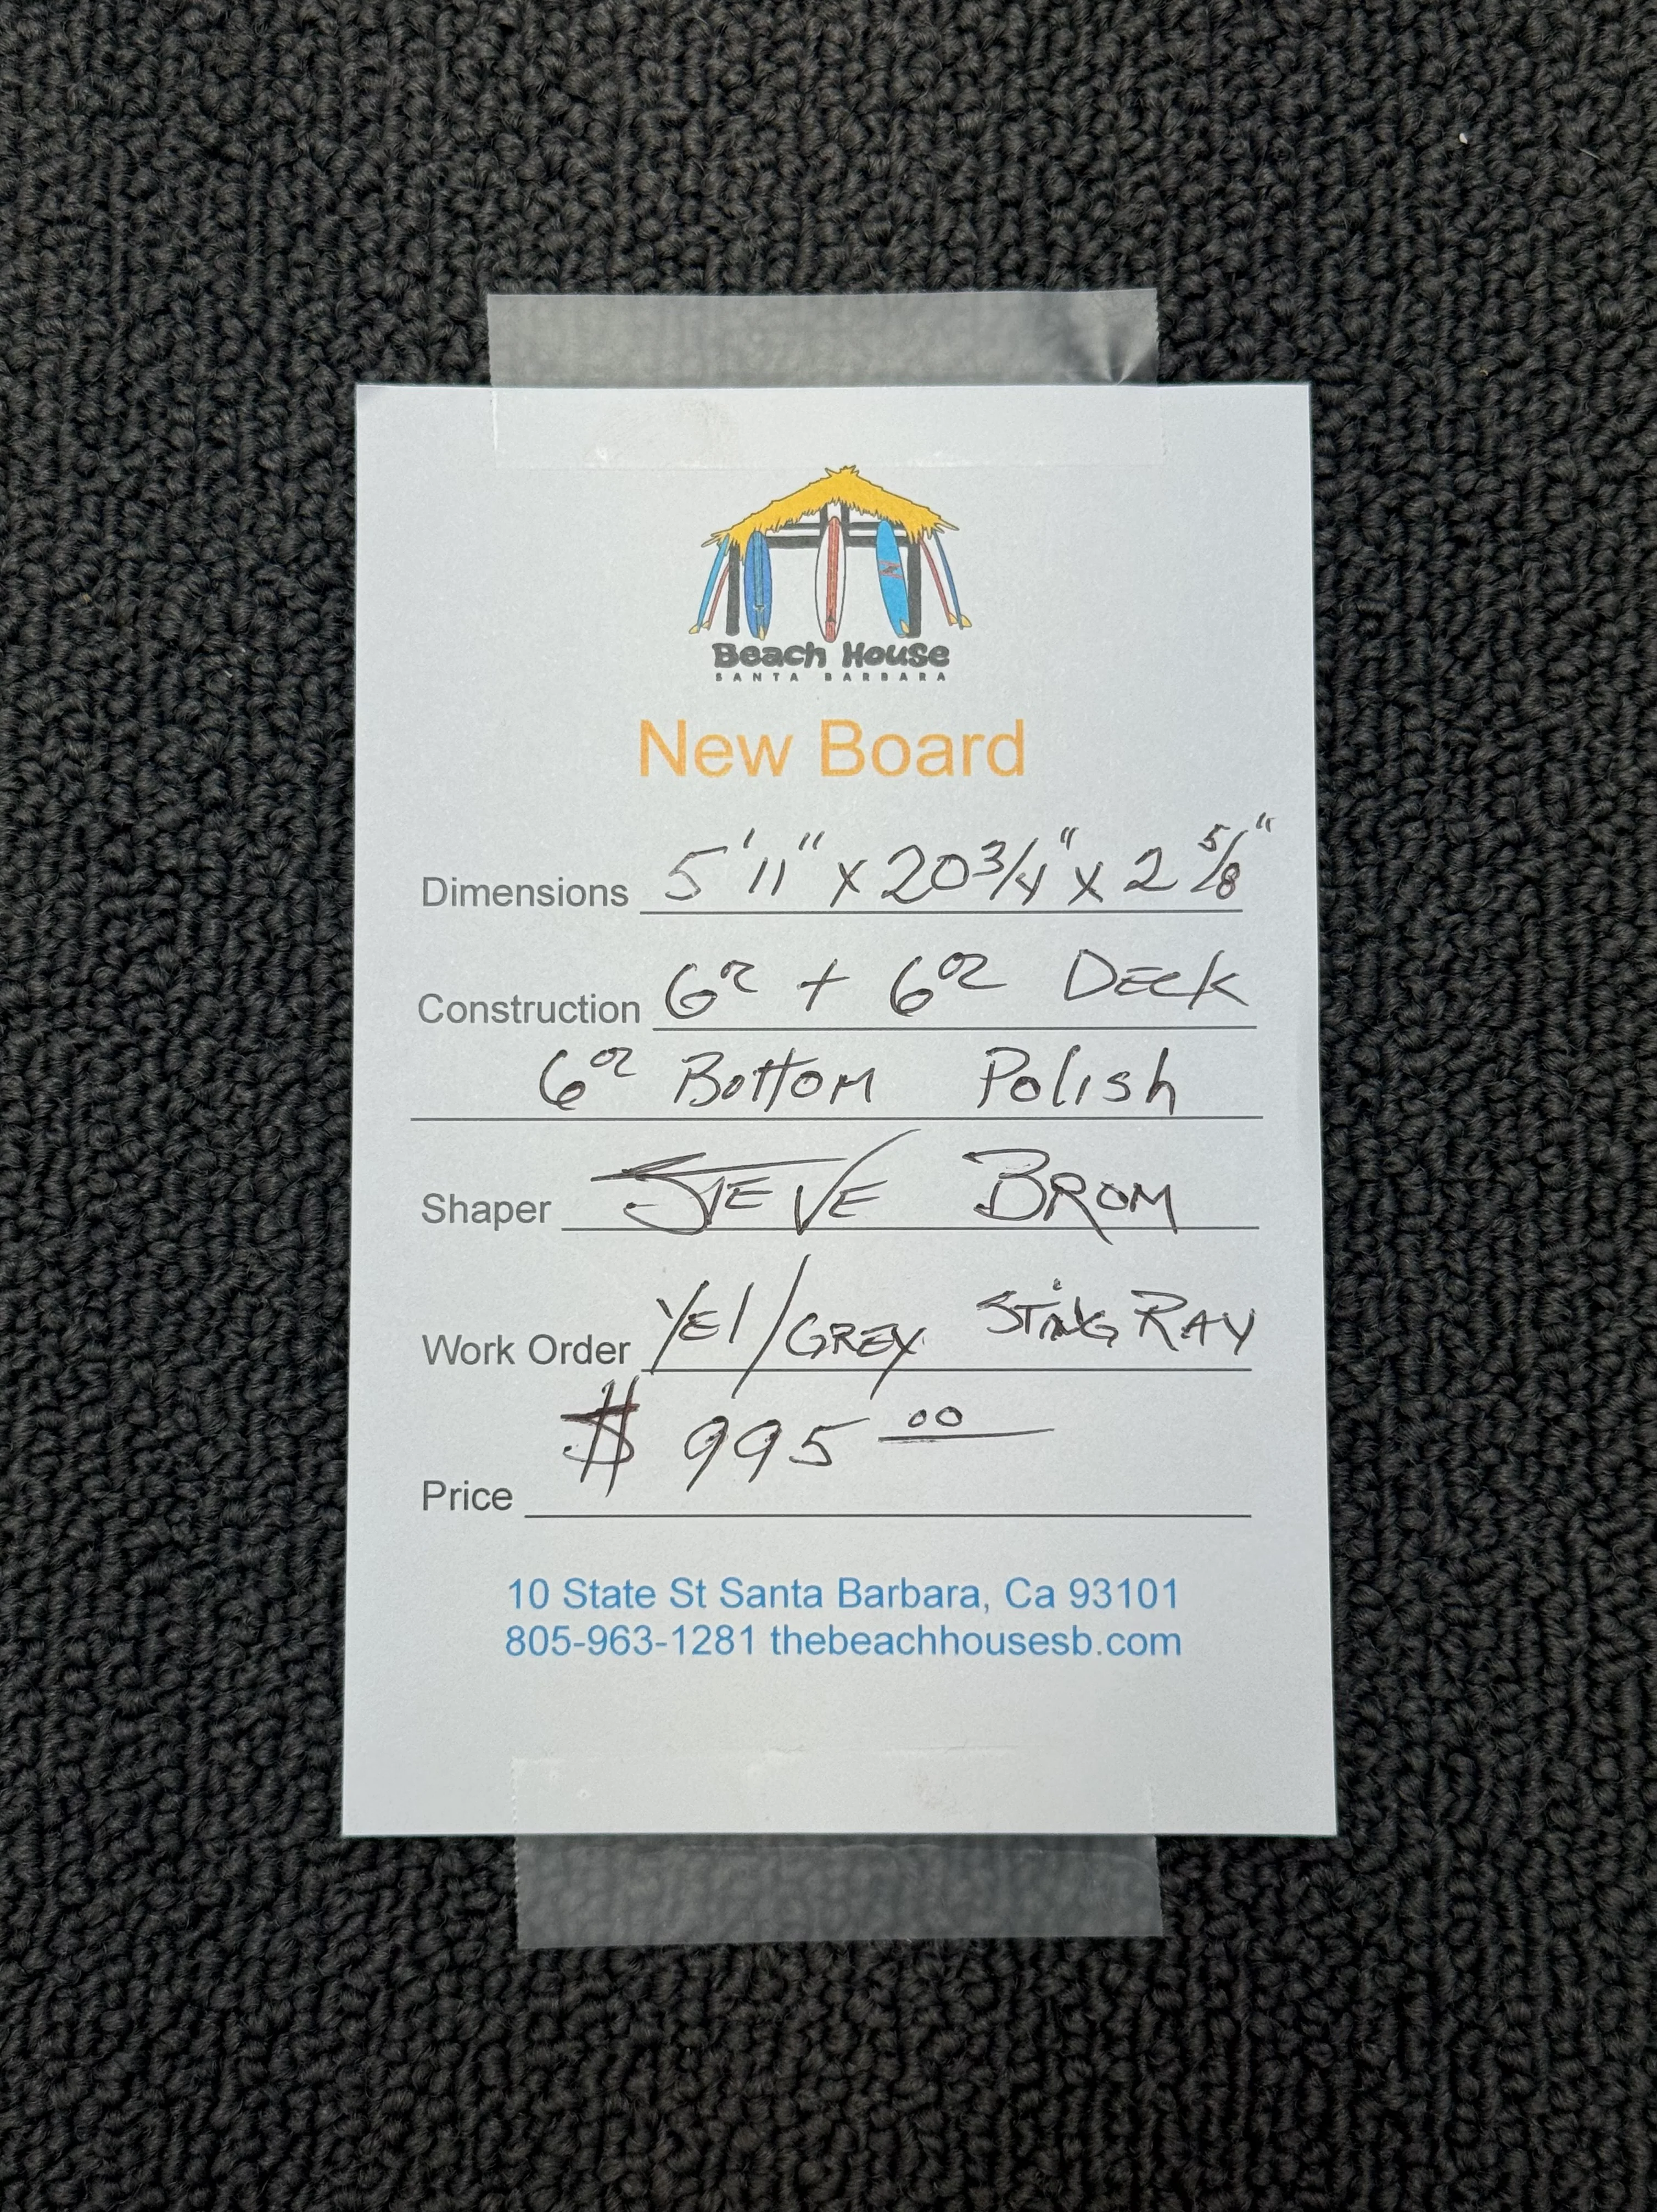 Beach House
SANTA BARBARA
New Board
Dimensions 5'11" x 20 3/4" x 2 5/8"
Construction 6oz + 6oz DECK
6oz Bottom Polish
Shaper STEVE BROM
Work Order YEl/GREY STING RAY
$ 995 00
Price
10 State St Santa Barbara, Ca 93101
805-963-1281 thebeachhousesb.com